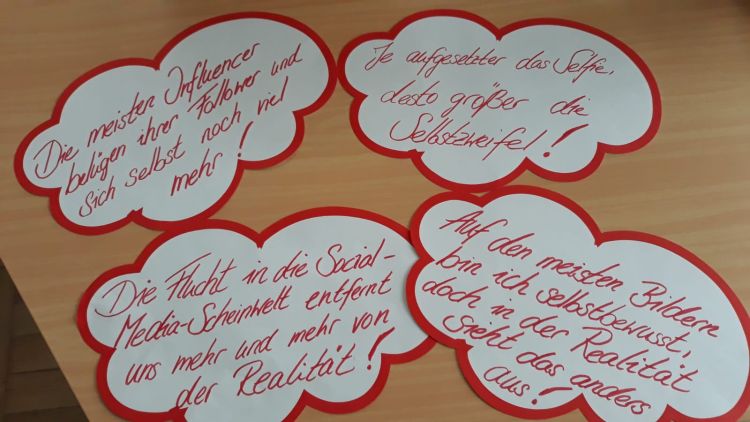 Die meisten Influencer
belügen ihrer Follower und
sich selbst noch viel
mehr!
Je aufgesetzter das Selfie,
desto größer die
Selbstzweifel!
Die Flucht in die Social-
Media-Scheinwelt entfernt
uns mehr und mehr von
der Realität!
Auf den meisten Bildern
bin ich selbstbewusst,
doch in der Realität
sieht das anders
aus!